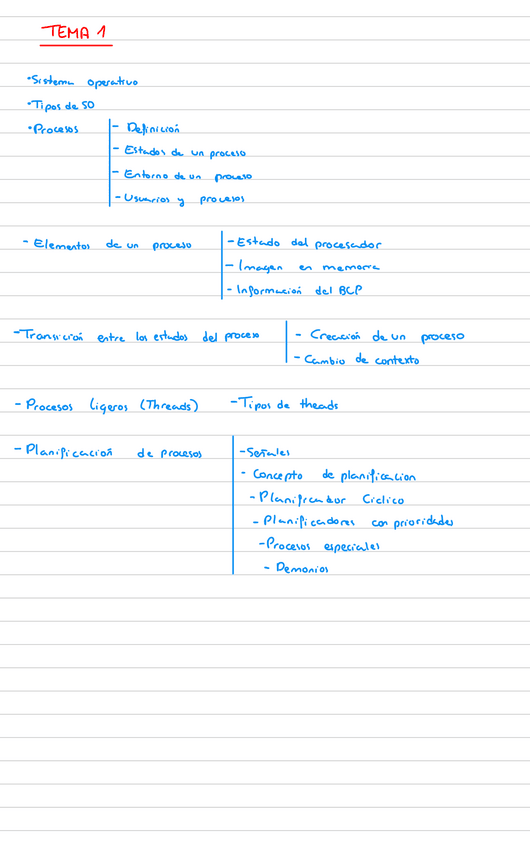 TEMA 1
•Sistema operativo
•Tipos de SO
•Procesos - Definición
- Estados de un proceso
- Entorno de un proceso
- Usuarios y procesos
- Elementos de un proceso - Estado del procesador
- Imagen en memoria
- Información del BCP
- Transición entre los estados del proceso - Creación de un proceso
- Cambio de contexto
- Procesos ligeros (Threads) - Tipos de theads
- Planificación de procesos - Señales
- Concepto de planificacion
- Planificador Ciclico
- Planificadores con prioridades
- Procesos especiales
- Demonios